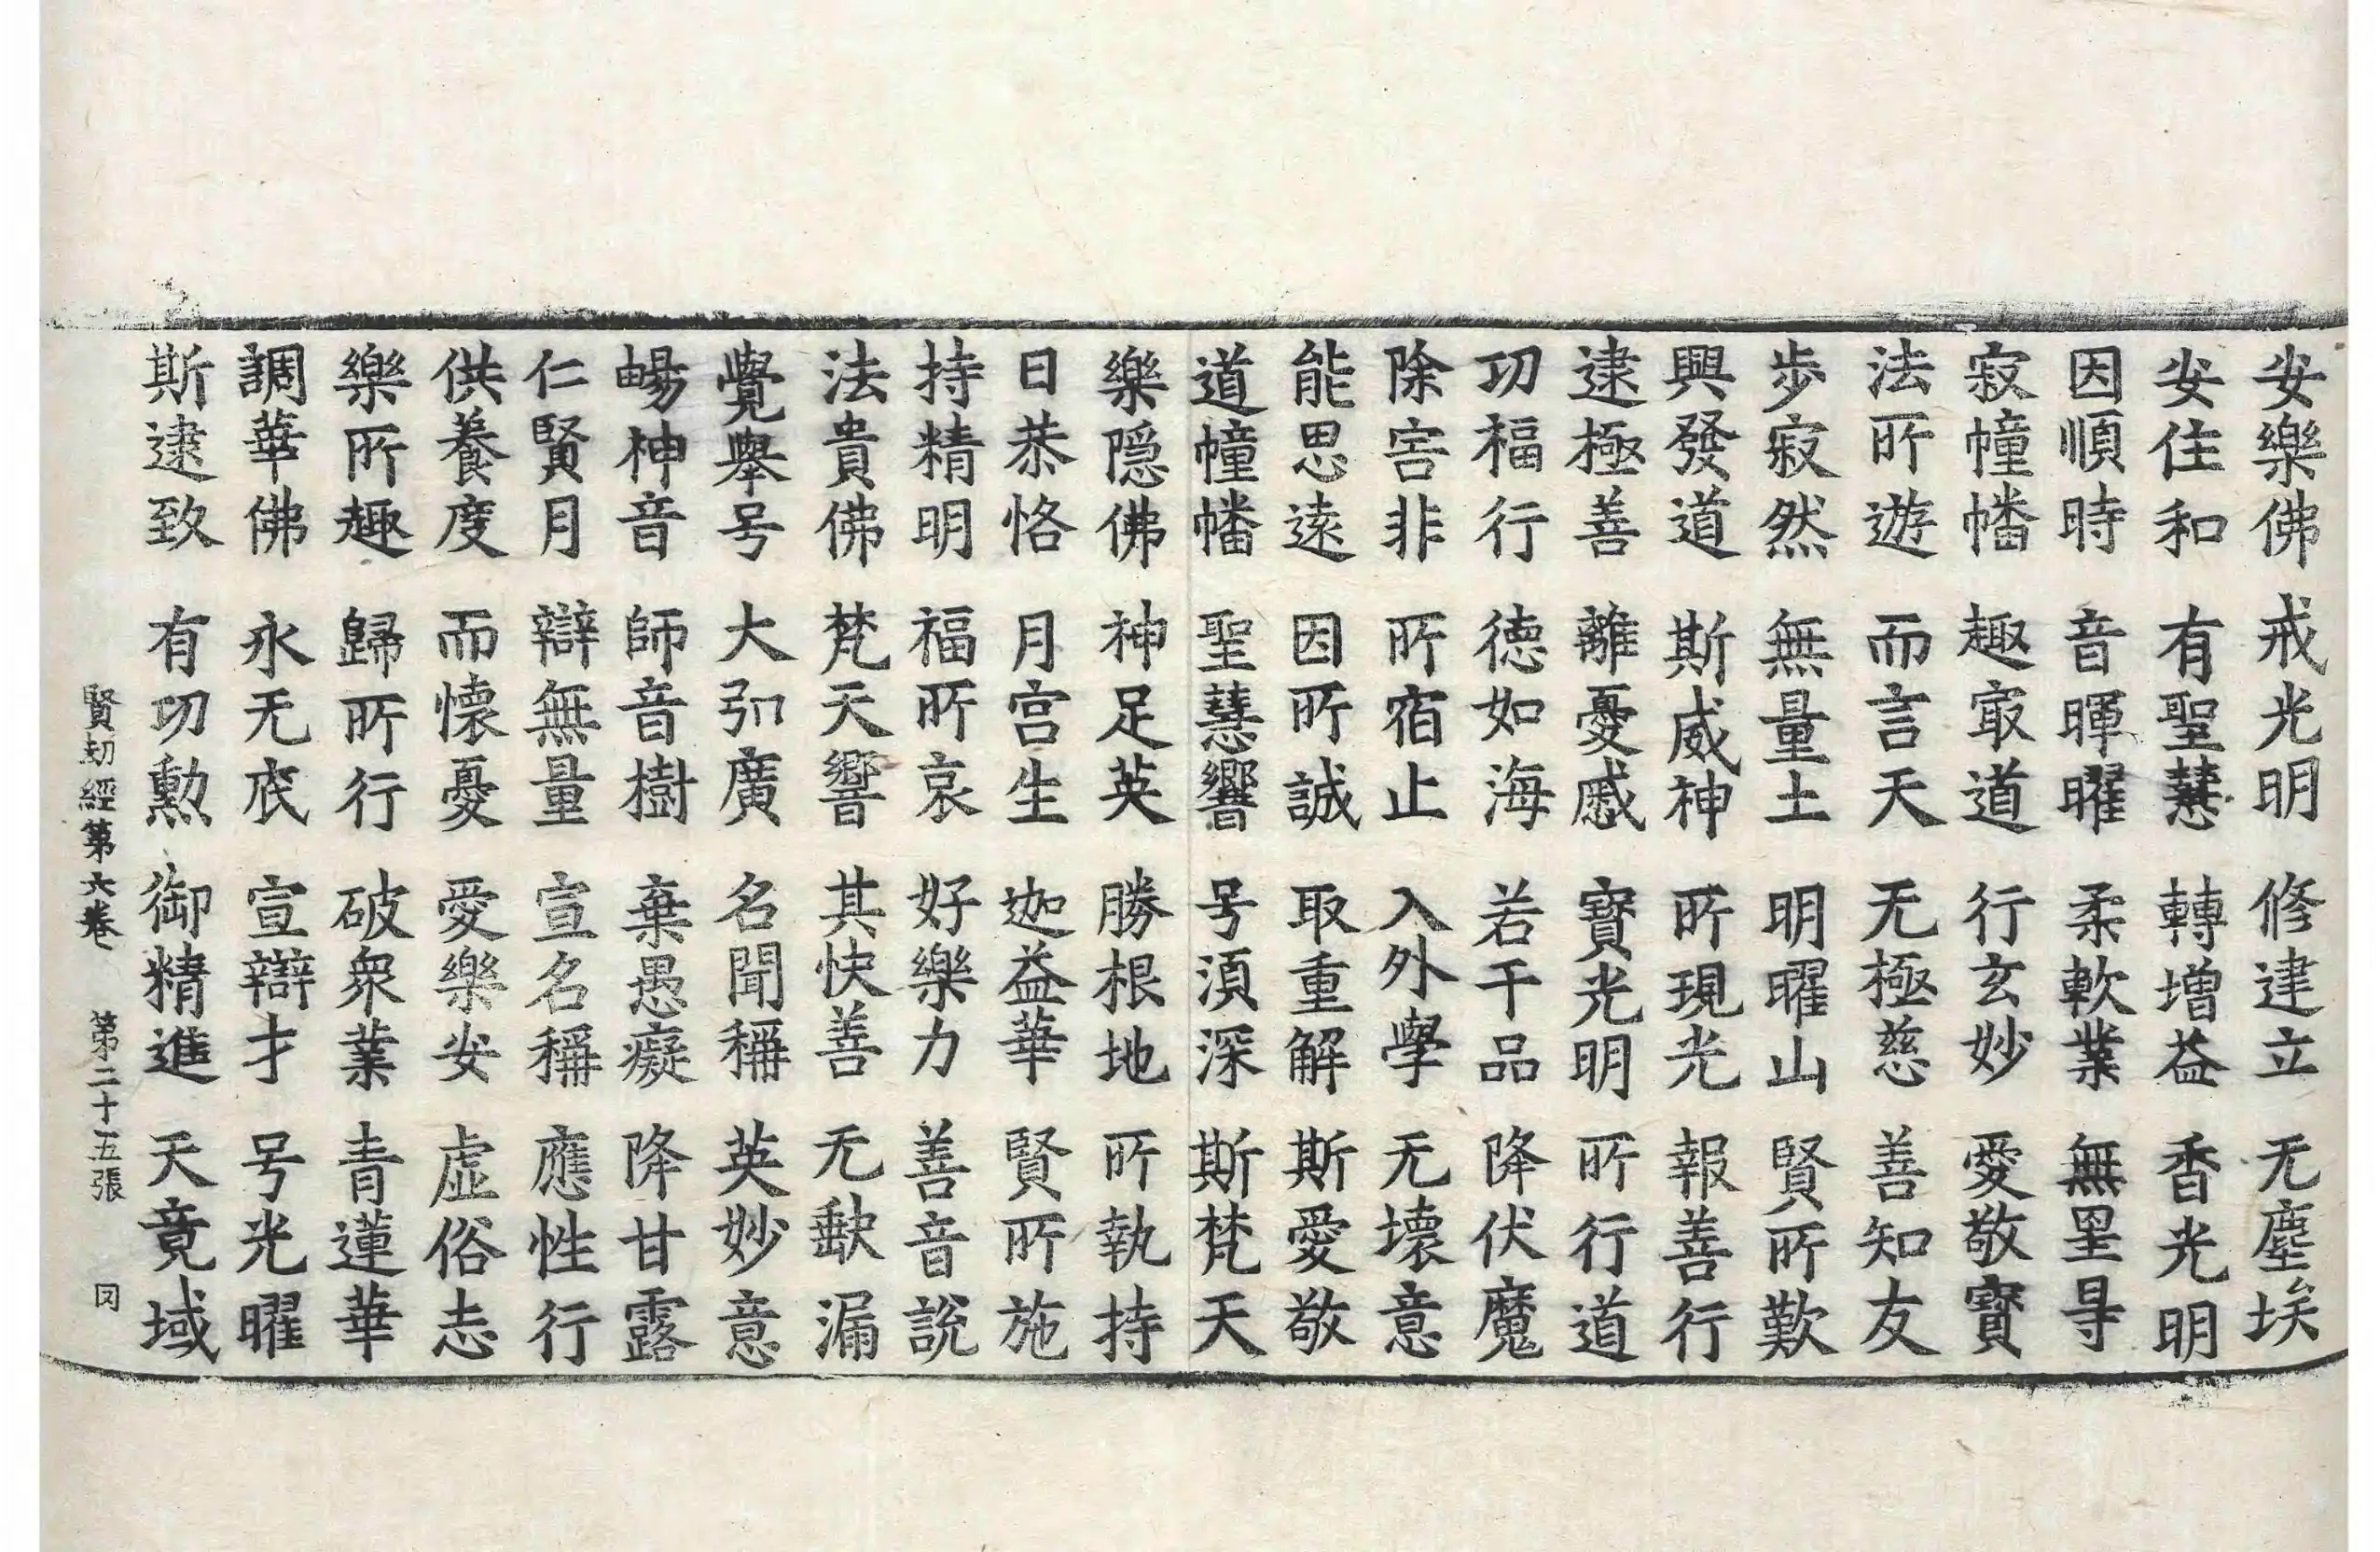 安樂佛 戒光明 修建立 无塵埃
安住和 有聖慧 轉增益 香光明
因順時 音暉曜 柔軟業 無罣㝵
寂幢幡 趣㝡道 行玄妙 愛敬寶
法所遊 而言天 无極慈 善知友
步寂然 無量土 明曜山 賢所歎
興發道 斯威神 所現光 報善行
逮極善 離憂慼 寶光明 所行道
功福行 德如海 若干品 降伏魔
除害非 所宿止 入外學 无壞意
能思遠 因所誠 取重解 斯愛敬
道幢幡 聖慧響 号須深 斯梵天
樂隱佛 神足英 勝根地 所執持
日恭恪 月宮生 迦益華 賢所施
持精明 福所哀 好樂力 善音說
法貴佛 梵天響 其快善 无缺漏
覺舉号 大弘廣 名聞稱 英妙意
暢神音 師音樹 棄愚癡 降甘露
仁賢月 辯無量 宣名稱 應性行
供養度 而懷憂 愛樂安 虛俗志
樂所趣 歸所行 破衆業 青蓮華
調華佛 永无底 宣辯才 号光曜
斯逮致 有功勲 御精進 天竟域
賢劫經第六卷 第二十五張 同